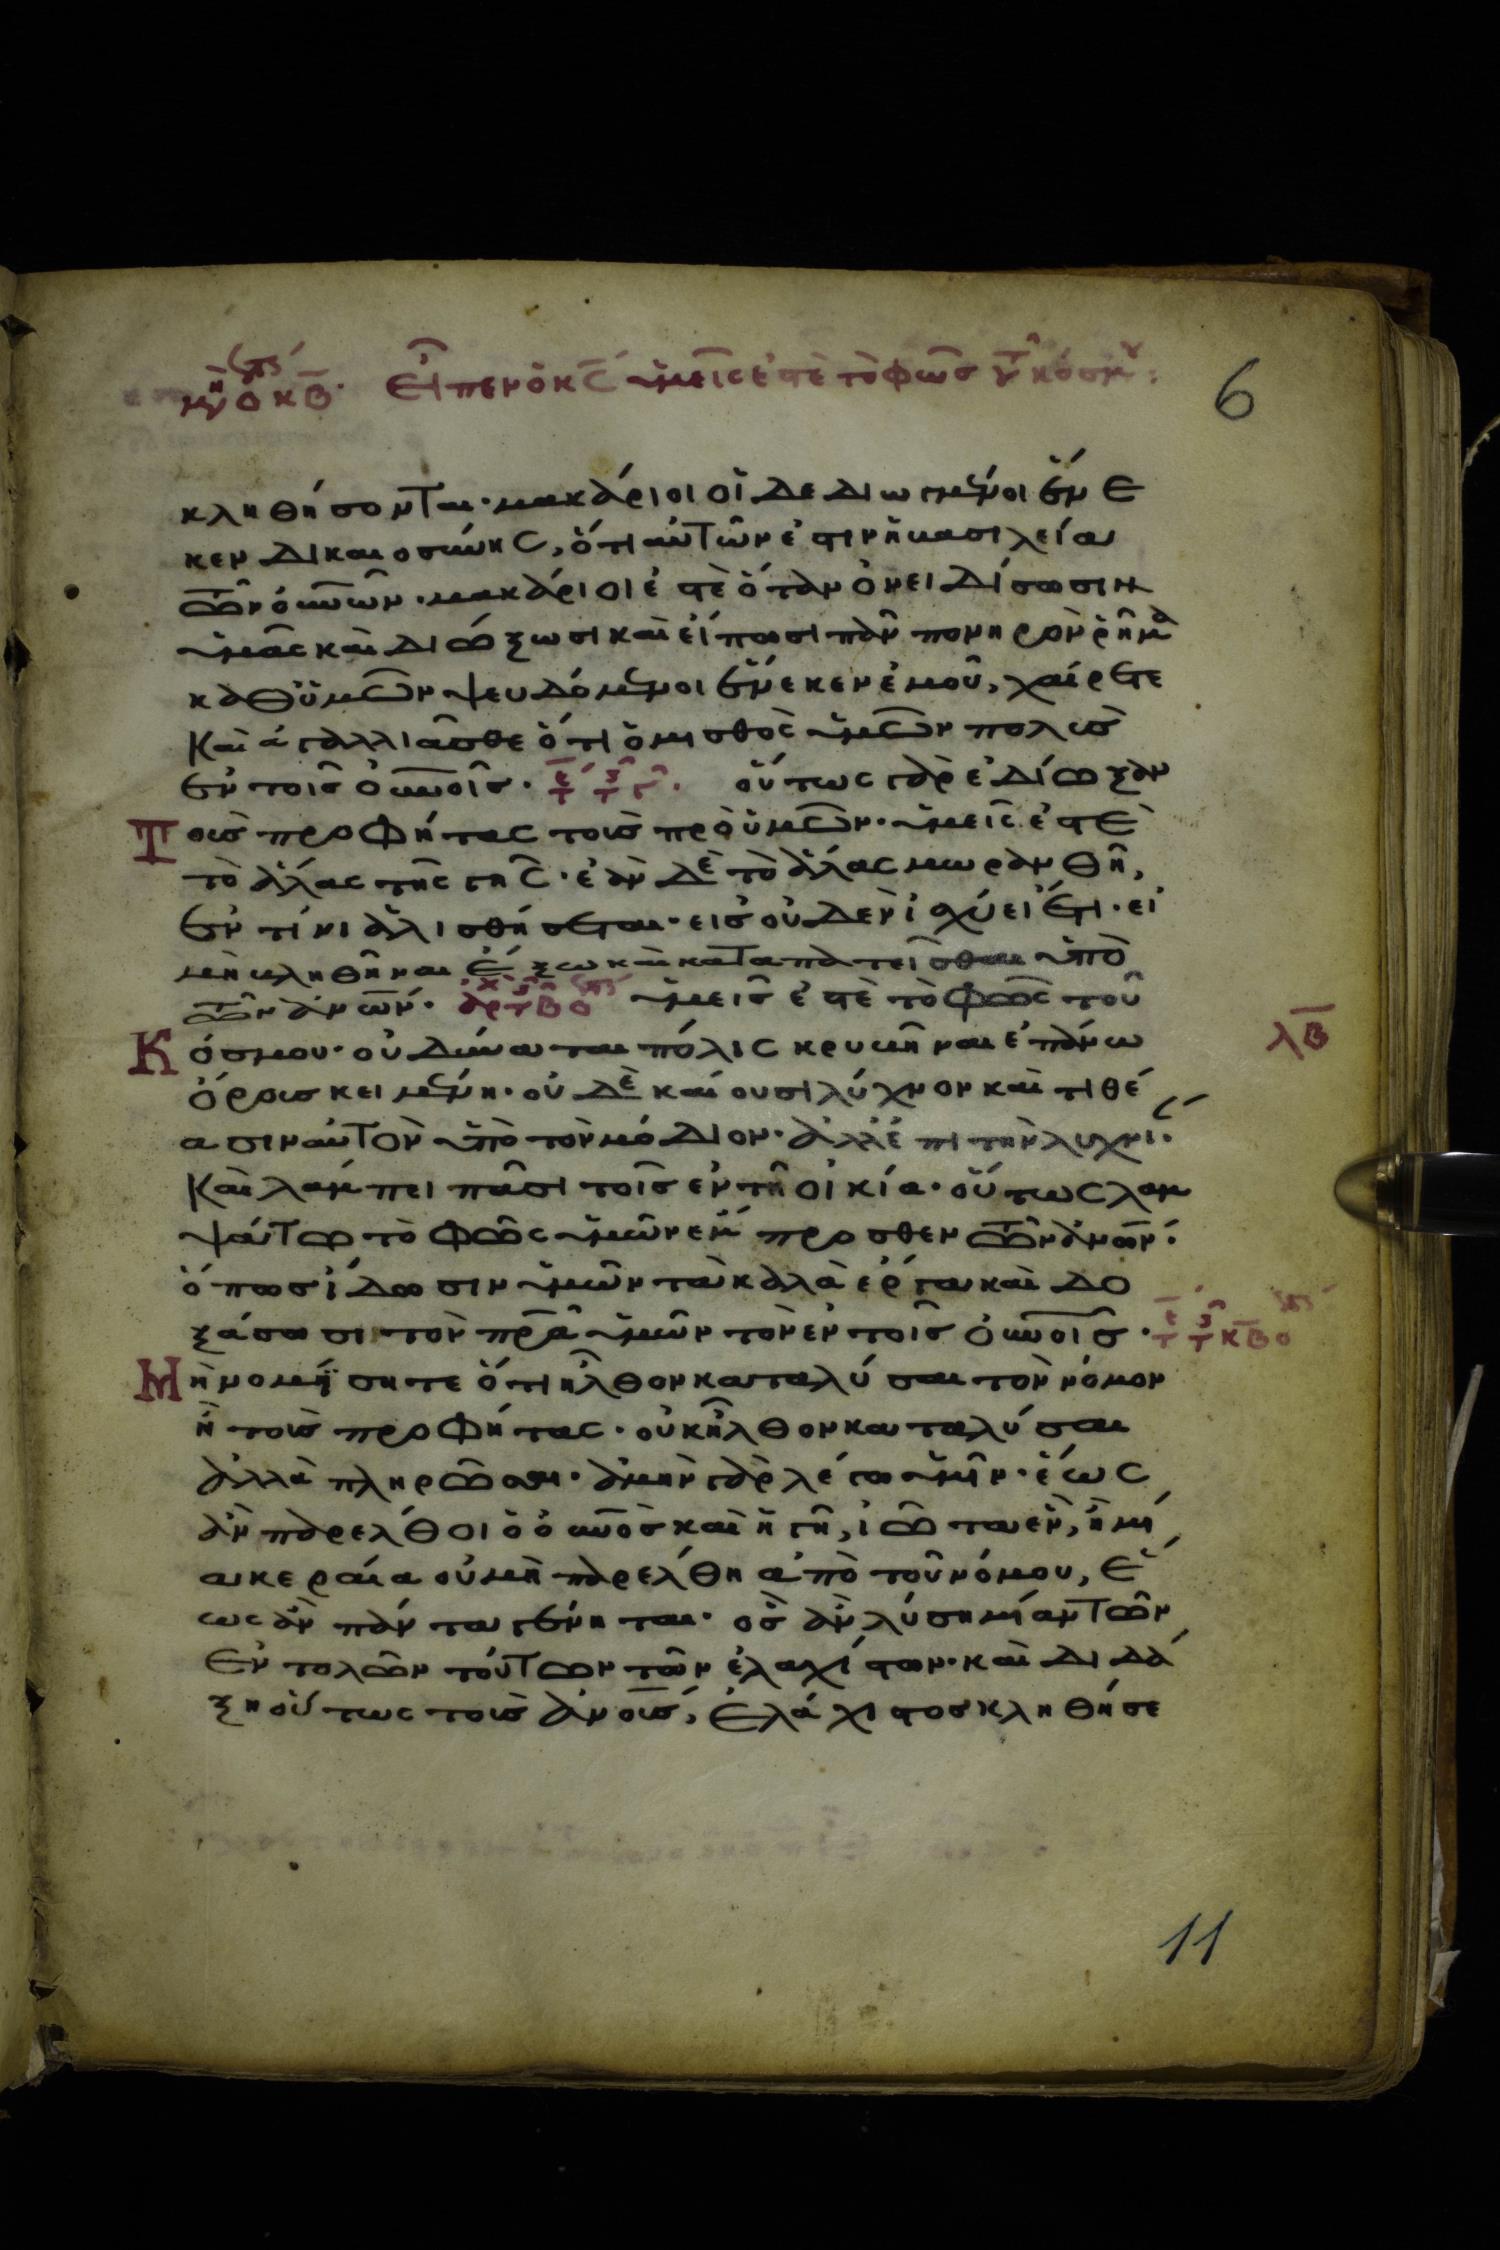 εἶπεν ὁ κς̄ ὑμεῖς ἐστὲ τὸ φῶς τοῦ κόσμου: 6
κληθήσονται· μακάριοι οἱ δεδιωγμένοι ἕνε
κεν δικαιοσύνης, ὅτι αὐτῶν ἐστιν ἡ βασιλεία
τῶν οὐνῶν· μακάριοί ἐστε ὅταν ὀνειδίσωσιν
ὑμᾶς καὶ διώξωσι καὶ εἴπωσι πᾶν πονηρὸν ῥῆμα
καθ' ὑμῶν ψευδόμενοι ἕνεκεν ἐμοῦ, χαίρετε
καὶ ἀγαλλιᾶσθε ὅτι ὁ μισθὸς ὑμῶν πολὺς
ἐν τοῖς οὐνοῖς· οὕτως γὰρ ἐδίωξαν
Τοὺς προφήτας τοὺς πρὸ ὑμῶν· ὑμεῖς ἐστὲ
τὸ ἅλας τῆς γῆς· ἐὰν δὲ τὸ ἅλας μωρανθῆ,
ἐν τίνι ἁλισθήσεται· εἰς οὐδὲν ἰσχύει ἔτι· εἰ
μὴ βληθῆναι ἔξω καὶ καταπατεῖσθαι ὑπὸ
τῶν ἀνων· ὑμεῖς ἐστὲ τὸ φῶς τοῦ
Κόσμου· οὐ δύναται πόλις κρυβῆναι ἐπάνω λβ
ὄρους κειμένη· οὐδὲ καίουσι λύχνον καὶ τιθέ
ασιν αὐτὸν ὑπὸ τὸν μόδιον· ἀλλ' ἐπὶ τὴν λυχνί·
καὶ λάμπει πᾶσι τοῖς ἐν τῆ οἰκία· οὕτως λαμ
ψάτω τὸ φῶς ὑμῶν ἔμπροσθεν τῶν ἀνων·
ὅπως ἴδωσιν ὑμῶν τὰ καλὰ ἔργα καὶ δο
ξάσωσι τὸν πρα ὑμῶν τὸν ἐν τοῖς οὐνοῖς·
Μὴ νομήσητε ὅτι ἦλθον καταλύσαι τὸν νόμον
ἢ τοὺς προφήτας· οὐκ ἦλθον καταλύσαι
ἀλλὰ πληρῶσαι· ἀμὴν γὰρ λέγω ὑμῖν· ἕως
ἂν παρέλθοι ὁ οὐνὸς καὶ ἡ γῆ, ἰῶτα ἓν, ἢ μί
α κεραία οὐ μὴ παρέλθη ἀπὸ τοῦ νόμου, ἕ
ως ἂν πάντα γένηται· ὃς ἂν λύση μίαν τῶν
ἐντολῶν τούτων τῶν ἐλαχίστων· καὶ διδά
ξη οὕτως τοὺς ἀνους, ἐλάχιστος κληθήσε
11